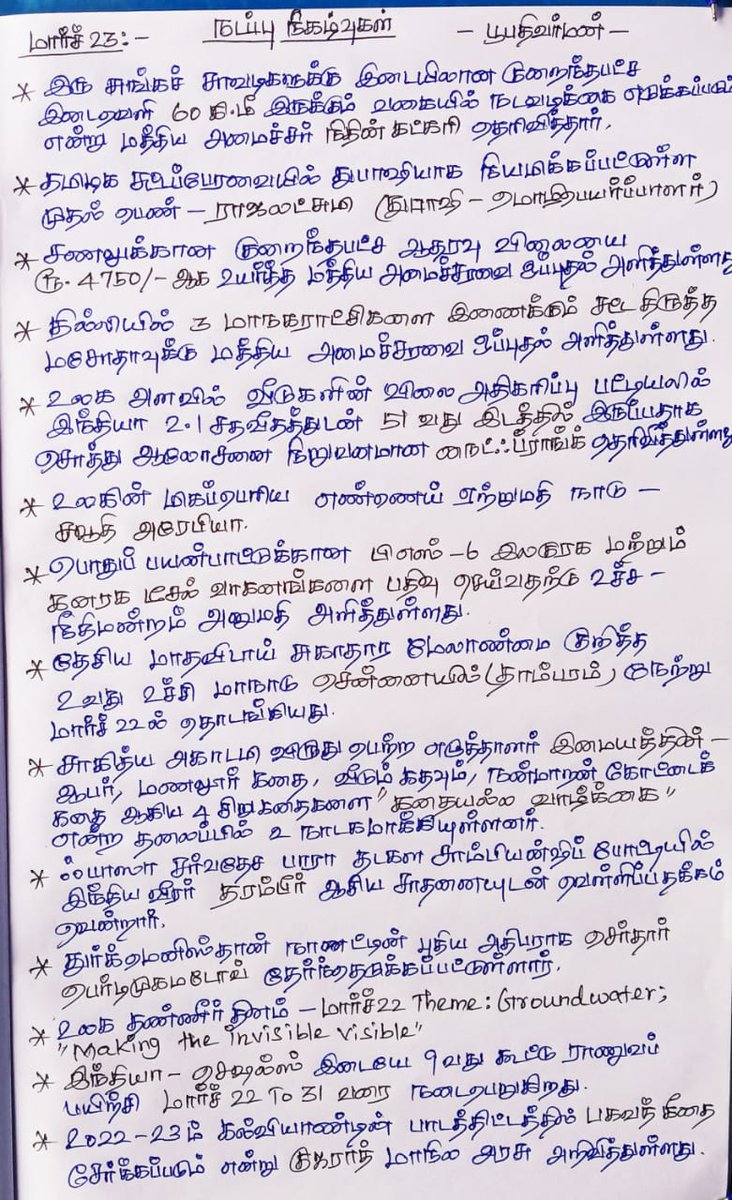 மார்ச் 23:- நடப்பு நிகழ்வுகள் - பூபதிவர்மன் -
* இரு சுங்கச் சாவடிகளுக்கு இடையிலான குறைந்தபட்ச
இடைவெளி 60 கி.மீ இருக்கும் வகையில் நடவடிக்கை எடுக்கப்படும்
என்று மத்திய அமைச்சர் நிதின் கட்கரி தெரிவித்தார்.
* தமிழக சட்டப்பேரவையில் துபாஷியாக நியமிக்கப்பட்டுள்ள
முதல் பெண் - ராஜலட்சுமி (துபாஷி - மொழிபெயர்ப்பாளர்)
* சணலுக்கான குறைந்தபட்ச ஆதரவு விலையை
ரூ. 4750/- ஆக உயர்த்த மத்திய அமைச்சரவை ஒப்புதல் அளித்துள்ளது
* தில்லியில் 3 மாநகராட்சிகளை இணைக்கும் சட்ட திருத்த
மசோதாவுக்கு மத்திய அமைச்சரவை ஒப்புதல் அளித்துள்ளது.
* உலக அளவில் வீடுகளின் விலை அதிகரிப்பு பட்டியலில்
இந்தியா 2.1 சதவீதத்துடன் 51 வது இடத்தில் இருப்பதாக
சொத்து ஆலோசனை நிறுவனமான நைட் ஃப்ராங்க் தெரிவித்துள்ளது
* உலகின் மிகப்பெரிய எண்ணெய் ஏற்றுமதி நாடு -
சவூதி அரேபியா.
* பொதுப் பயன்பாட்டுக்கான பிஎஸ் -6 இலகுரக மற்றும்
கனரக டீசல் வாகனங்களை பதிவு செய்வதற்கு உச்ச -
நீதிமன்றம் அனுமதி அளித்துள்ளது.
* தேசிய மாதவிடாய் சுகாதார மேலாண்மை குறித்த
2வது உச்சி மாநாடு சென்னையில் (தாம்பரம்) நேற்று
மார்ச் 22ல் தொடங்கியது.
* சாகித்ய அகாடமி விருது பெற்ற எழுத்தாளர் இமையத்தின் -
ஆபர், மணலூர் கதை, வீடும் கதவும், நன்மாறன் கோட்டைக்
கதை ஆகிய 4 சிறுகதைகளை "கதையல்ல வாழ்க்கை"
என்ற தலைப்பில் உ நாடகமாக்கியுள்ளனர்.
* ஃபாஸா சர்வதேச பாரா தடகள சாம்பியன்ஷிப் போட்டியில்
இந்திய வீரர் தரம்பிர் ஆசிய சாதனையுடன் வெள்ளிப்பதக்கம்
வென்றார்.
* துர்க்மெனிஸ்தான் நாட்டின் புதிய அதிபராக செர்தார்
பெர்டிமுகமடோவ் தேர்ந்தெடுக்கப்பட்டுள்ளார்.
* உலக தண்ணீர் தினம் - மார்ச் 22 Theme: Groundwater;
"Making the invisible visible"
* இந்தியா - செஷல்ஸ் இடையே 9 வது கூட்டு ராணுவப்
பயிற்சி மார்ச் 22 To 31 வரை நடைபெறுகிறது.
* 2022-23ம் கல்வியாண்டின் பாடத்திட்டத்தில் பகவத் கீதை
சேர்க்கப்படும் என்று குஜராத் மாநில அரசு அறிவித்துள்ளது.